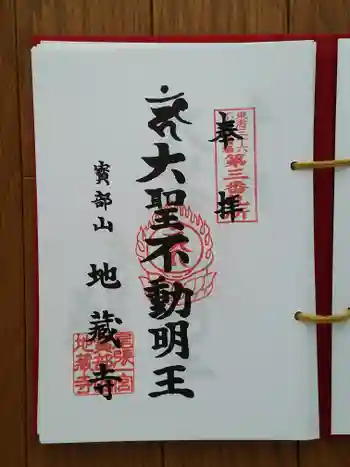 奉拝
第三番
大聖不動明王
寳部山
地蔵寺
地蔵寺